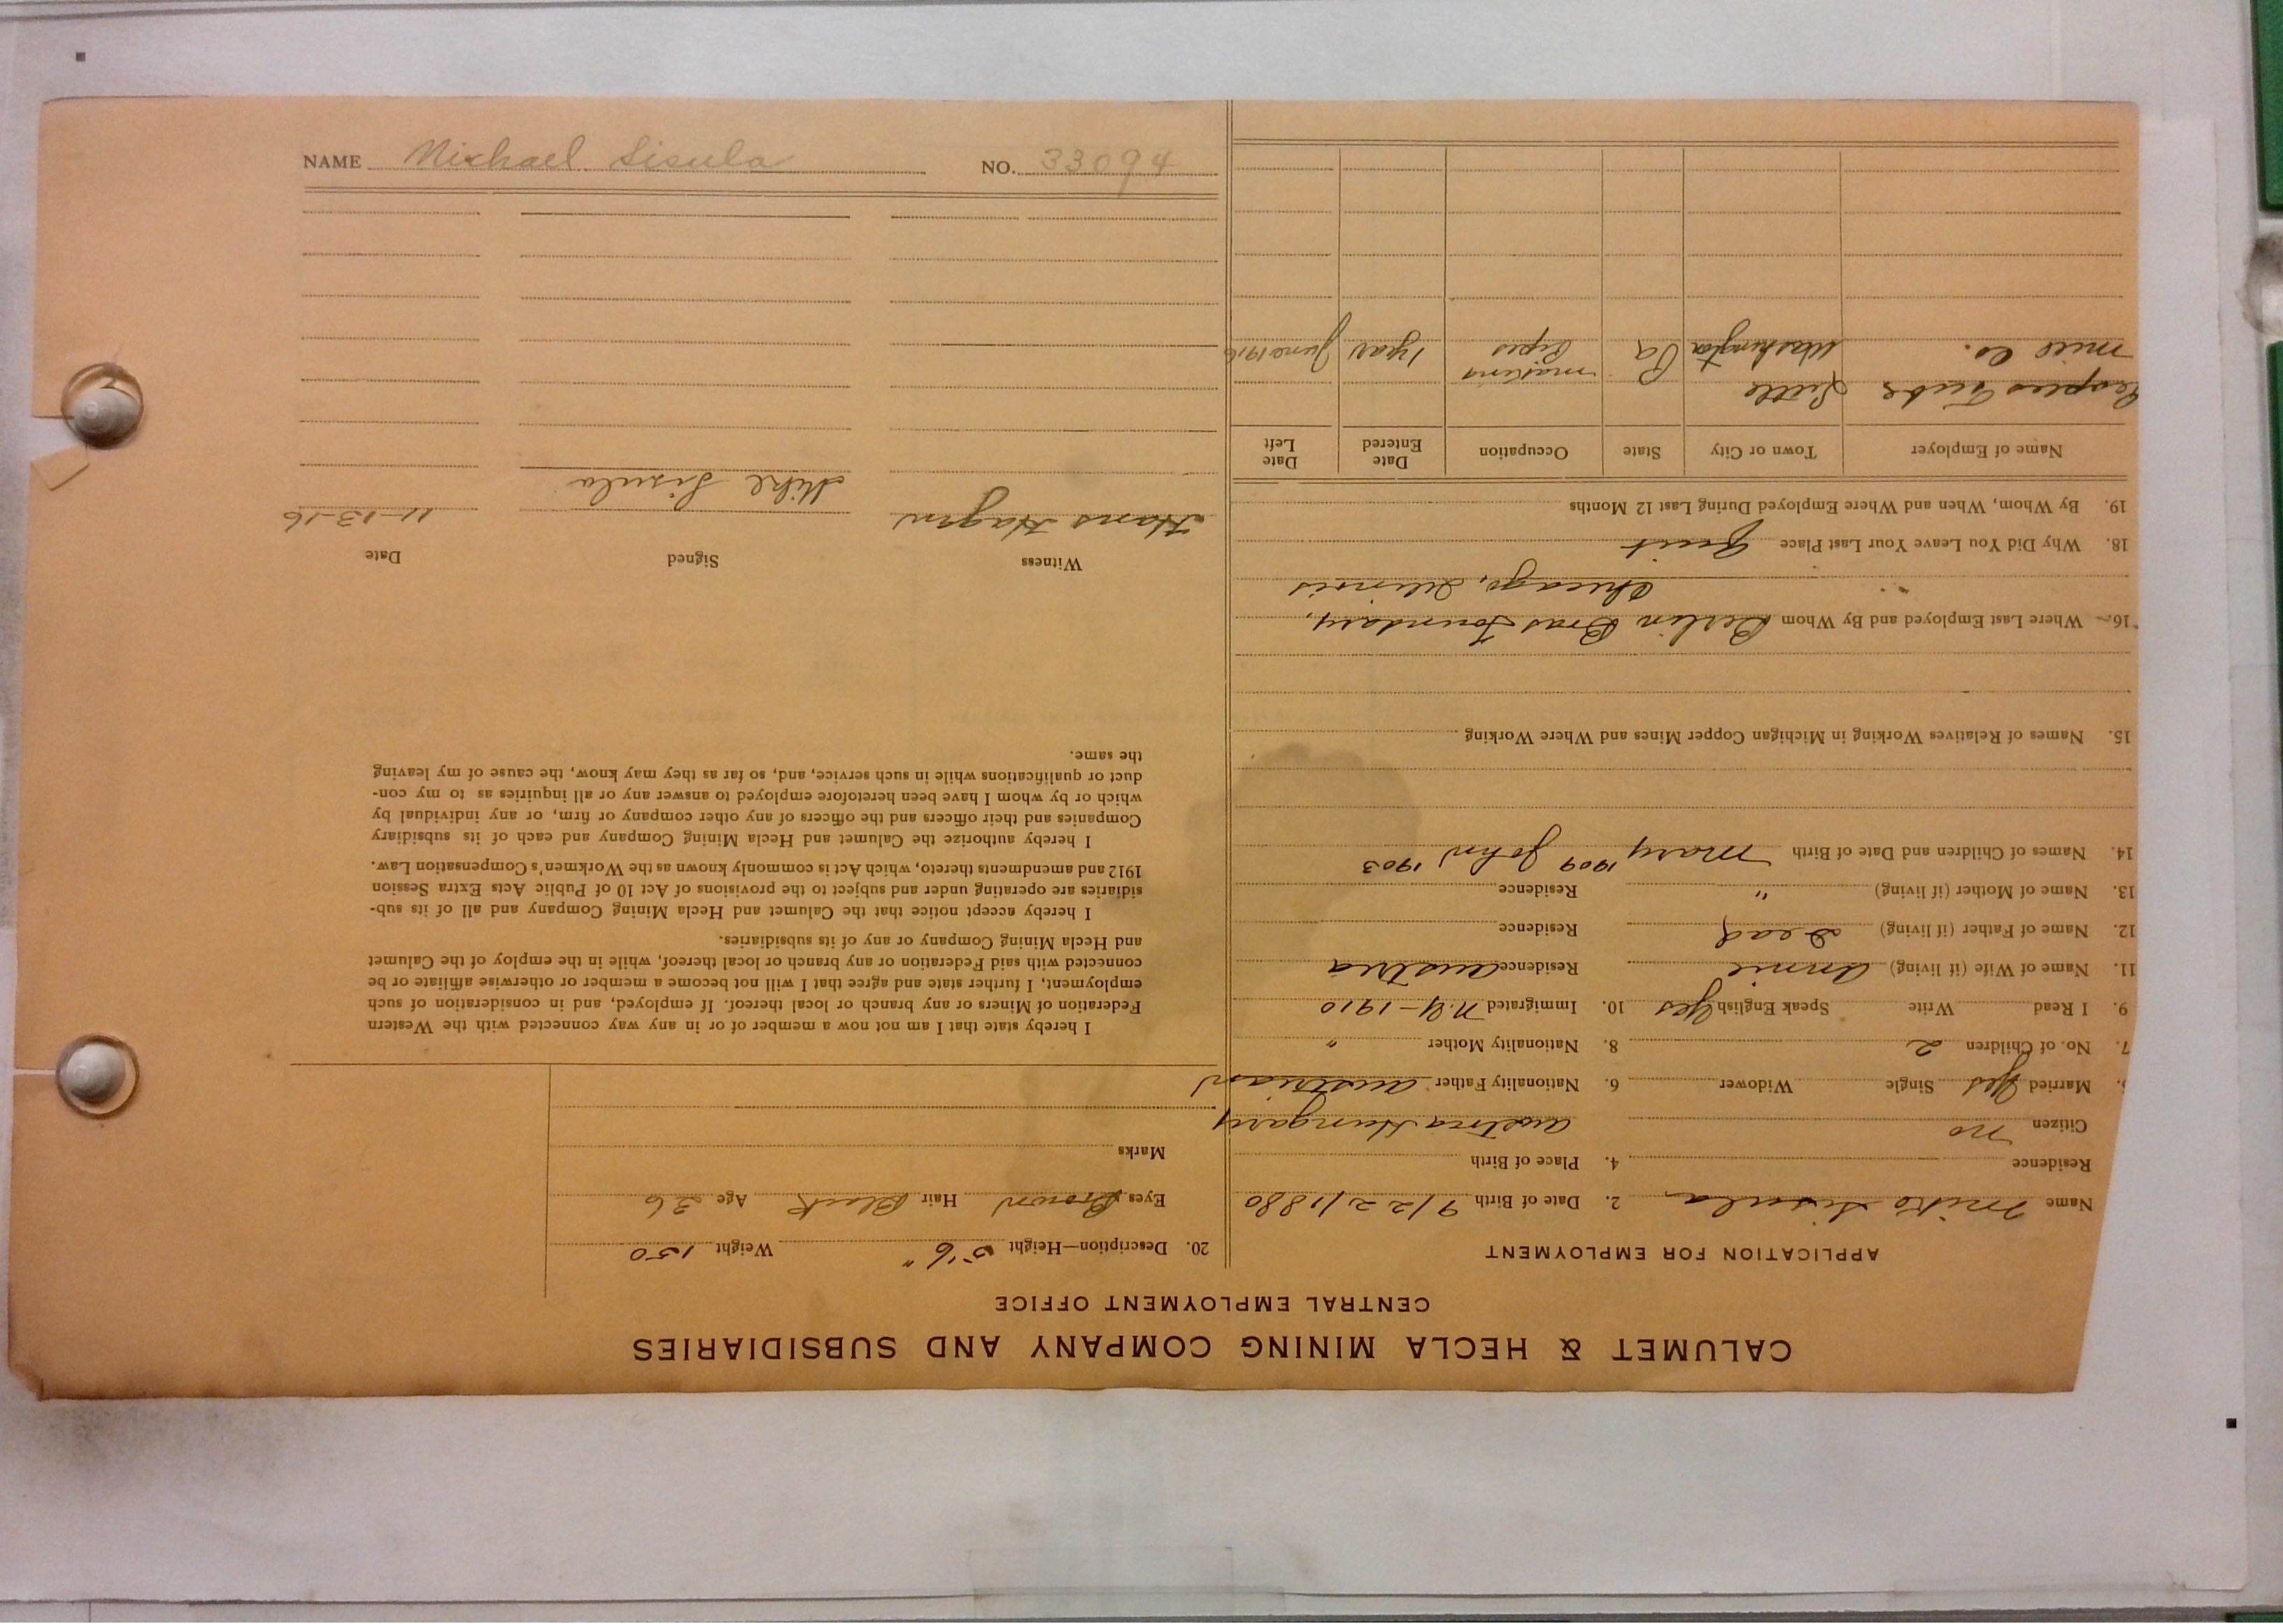 NAME Michael Sisula NO. 33094
CALUMET & HECLA MINING COMPANY AND SUBSIDIARIES
CENTRAL EMPLOYMENT OFFICE
APPLICATION FOR EMPLOYMENT
Name Mike Sisula
2. Date of Birth 9/22/1880
Residence
4. Place of Birth
Citizen no
Austria Hungary
Married Yes Single Widower
6. Nationality Father Austrian
7. No. of Children 2
8. Nationality Mother "
9. I Read Write Speak English Yes
10. Immigrated N.Y - 1910
11. Name of Wife (if living) Annie Residence Austria
12. Name of Father (if living) Dead Residence
13. Name of Mother (if living) " Residence
14. Names of Children and Date of Birth Mary 1909 John 1903
15. Names of Relatives Working in Michigan Copper Mines and Where Working
16. Where Last Employed and By Whom Berlin Bras Foundary,
Chicago, Illinois
18. Why Did You Leave Your Last Place Quit
19. By Whom, When and Where Employed During Last 12 Months
Name of Employer Town or City State Occupation Date Entered Date Left
Tube Little making
Mill Co. Washington Pa Pipes 1 year June 1916
20. Description—Height 5'6" Weight 150
Eyes Brown Hair Black Age 36
Marks
I hereby state that I am not now a member of or in any way connected with the Western
Federation of Miners or any branch or local thereof. If employed, and in consideration of such
employment, I further state and agree that I will not become a member or otherwise affiliate or be
connected with said Federation or any branch or local thereof, while in the employ of the Calumet
and Hecla Mining Company or any of its subsidiaries.
I hereby accept notice that the Calumet and Hecla Mining Company and all of its sub-
sidiaries are operating under and subject to the provisions of Act 10 of Public Acts Extra Session
1912 and amendments thereto, which Act is commonly known as the Workmen's Compensation Law.
I hereby authorize the Calumet and Hecla Mining Company and each of its subsidiary
Companies and their officers and the officers of any other company or firm, or any individual by
which or by whom I have been heretofore employed to answer any or all inquiries as to my con-
duct or qualifications while in such service, and, so far as they may know, the cause of my leaving
the same.
Witness Signed Date
Hans Hagen Mike Sisula 11-13-16